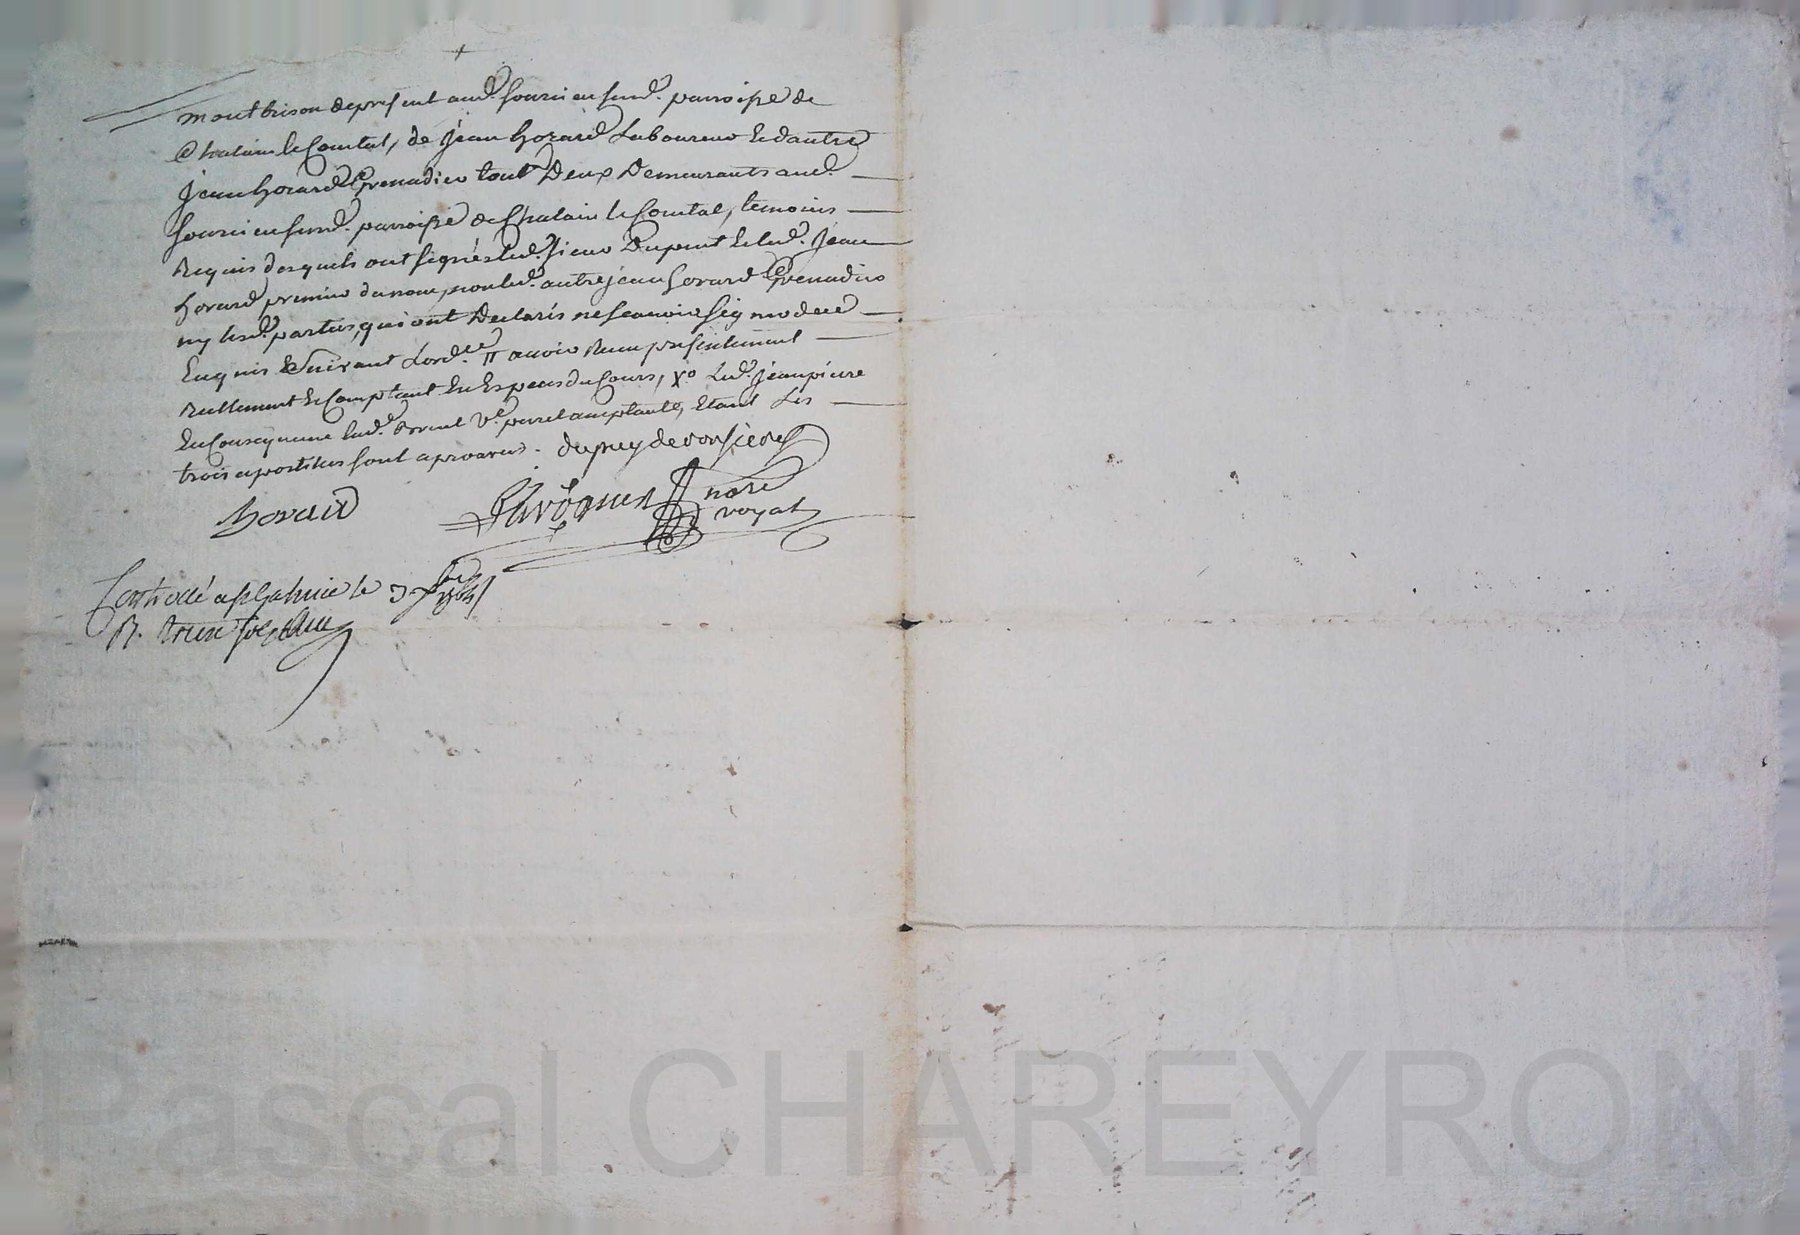 montbrison depresent aud. fourni en fund. parroisse de
Chalain le Comtal, de Jean horard Laboureur & dautre
Jean horard Grenadier tout Deux Demeurants aud.
parroisse de Chalain le Comtal, temoins
Requis desquels ont signés led. sieur Dupeut & led. Jean
horard premier du nom, non led. autre jean horard Grenadier
ny lesd. parties, qui ont Declarés ne scavoir signer de ce
Enquis & Suivant Lord.ce avoir Receu presentement
Reellement & Comptant En Especes du Cours, Led. Jean pierre
En Consequence lud. etant Les
trois apostilles sont aprouvées. dupuy
horard
notre
royal
Controllé a st Galmier le 3
R.
Pascal CHAREYRON